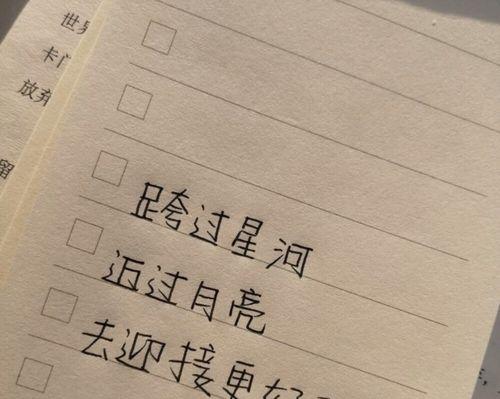 世界
卡门
放弃
留
跨过星河
迈过月亮
去迎接更好